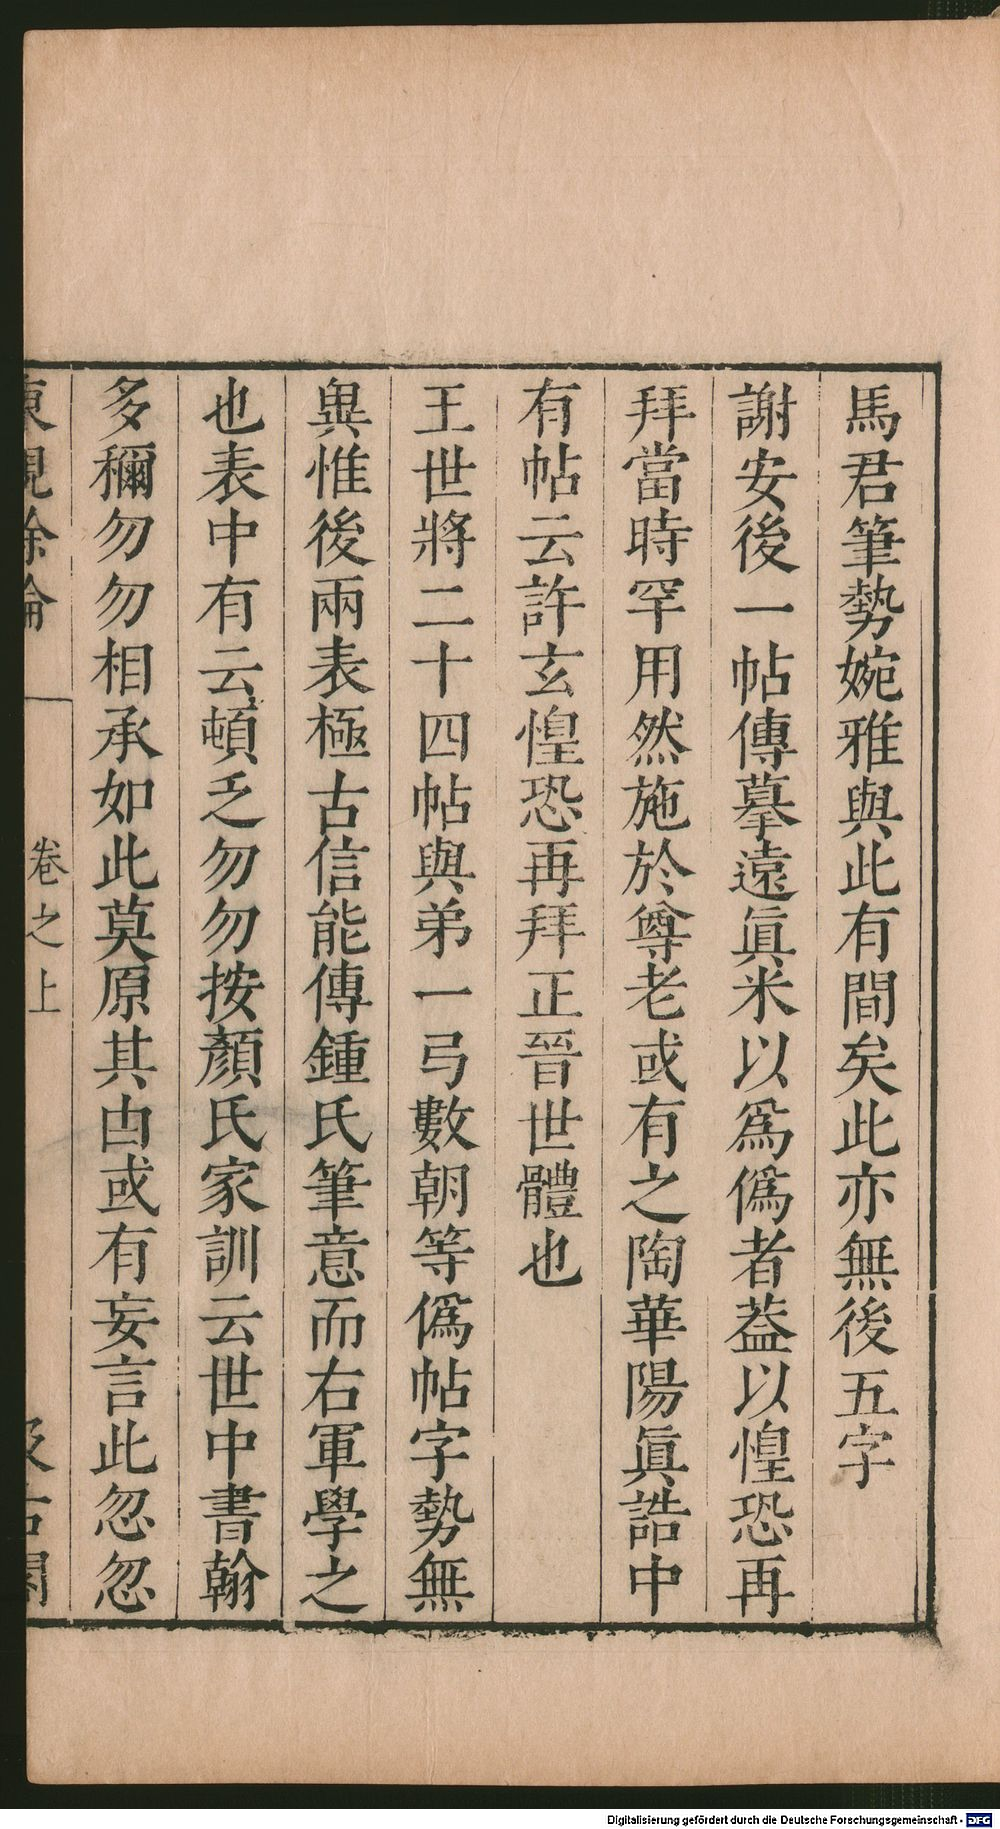 馬君筆勢婉雅與此有間矣此亦無後五字
謝安後一帖傳摹遠眞米以爲僞者葢以惶恐再
拜當時罕用然施於尊老或有之陶華陽眞誥中
有帖云許玄惶恐再拜正晉世體也
王世將二十四帖與弟一弓數朝等僞帖字勢無
異惟後兩表極古信能傳鍾氏筆意而右軍學之
也表中有云頓乏勿勿按顏氏家訓云世中書翰
多稱勿勿相承如此莫原其由或有妄言此忽忽
東觀餘論
卷之上
汲古閣
Digitalisierung gefördert durch die Deutsche Forschungsgemeinschaft - DFG